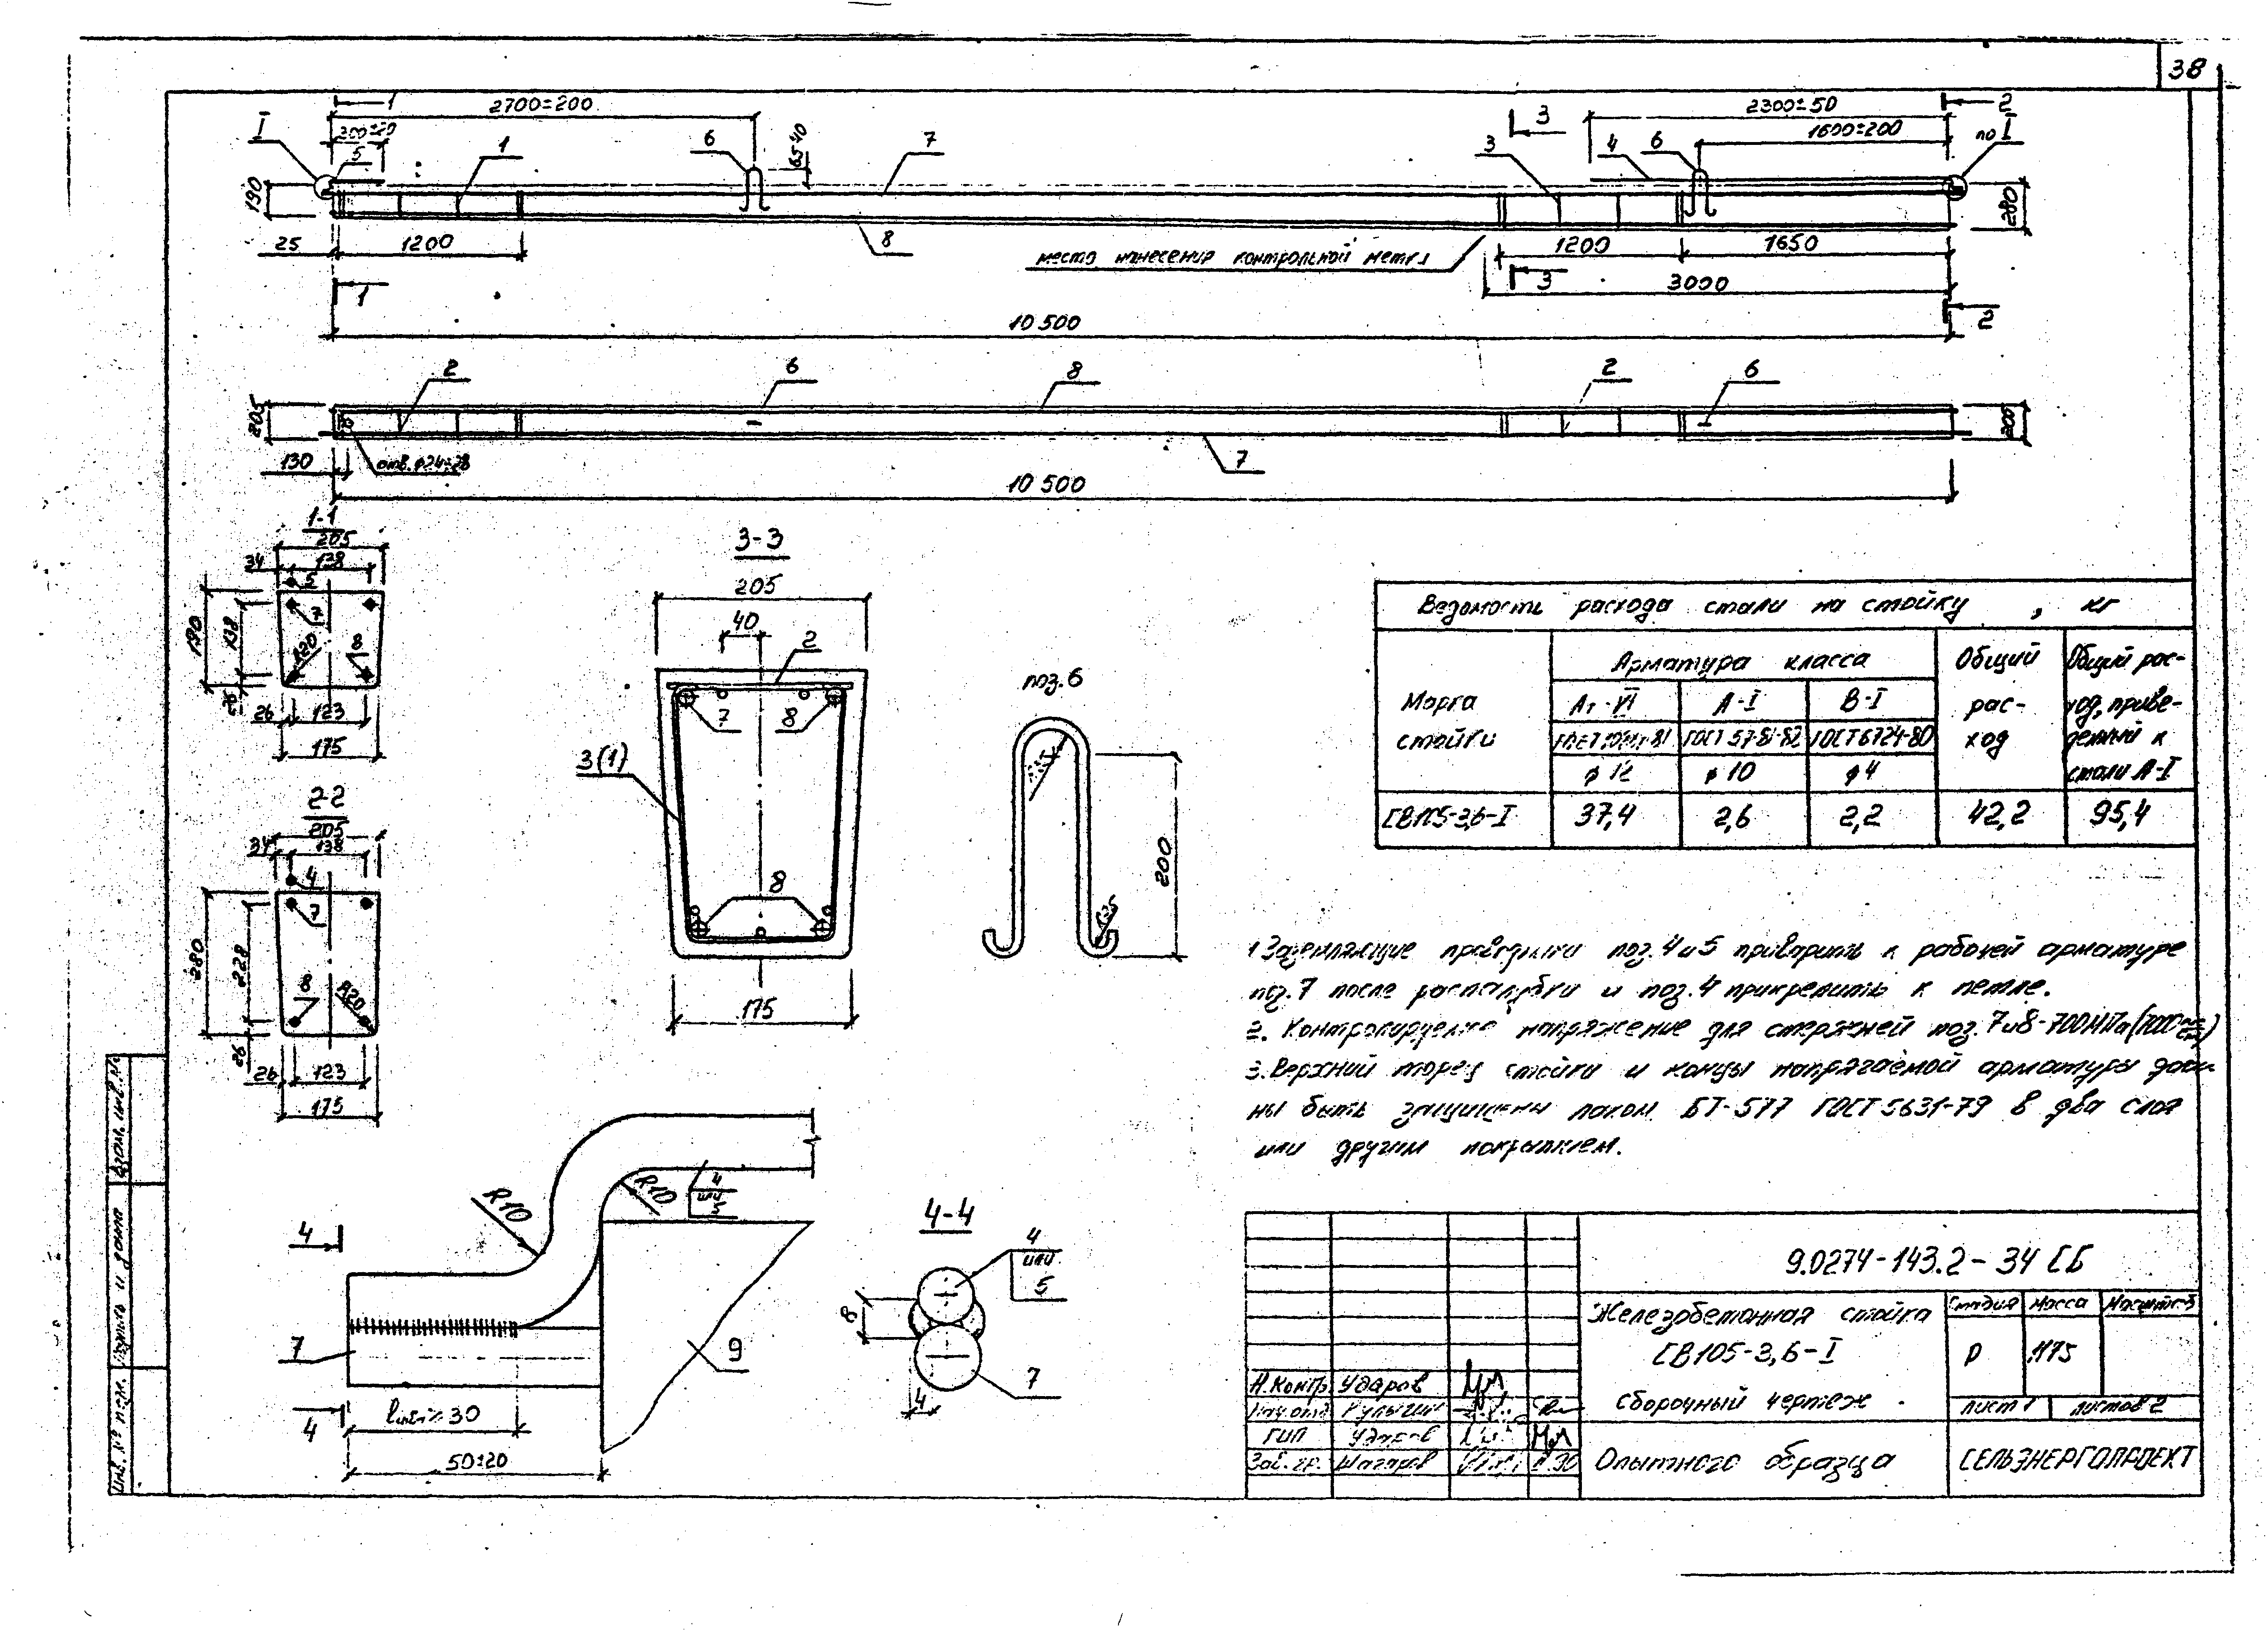 38
1
2700±200
2300±50
2
I
5
1
6
65±10
7
3
3
4
6
1600±200
по I
190
280
25
1200
8
место нанесения контрольной метки
1200
1650
3
3000
1
2
10 500
2
6
8
2
6
205
200
130
отв. ф24÷28
7
10 500
1-1
205
34
138
5
7
190
138
R20
8
26
26
123
175
2-2
205
34
138
4
7
280
228
8
R20
26
26
123
175
3-3
205
40
2
7
8
3(1)
8
175
поз.6
200
Ведомость расхода стали на стойку , кг
Марка стойки
Арматура класса
Общий расход
Общий расход, приведенный к стали А-I
Ат-VI
А-I
В-I
ГОСТ 5781-82
ГОСТ 6724-80
ф 12
ф 10
ф 4
СВ105-3,6-I
37,4
2,6
2,2
42,2
95,4
1 Заземляющие проводники поз.4 и 5 приварить к рабочей арматуре
поз.7 после распалубки и поз.4 прикрепить к петле.
2. Контролируемое напряжение для стержней поз. 7 и 8-700МПа
3. Верхний торец стойки и концы напрягаемой арматуры долж-
ны быть защищены лаком БТ-577 ГОСТ 5631-79 в два слоя
или другим покрытием.
R10
R10
4 или 5
4
7
9
4
50±20
4-4
4 или 5
8
7
4
9.0274-143.2-34 СБ
Железобетонная стойка
СВ105-3,6-I
сборочный чертеж
Опытного образца
Стадия
Масса
Масштаб
Р
1175
Лист 1
Листов 2
СЕЛЬЭНЕРГОПРОЕКТ
Н.Контр. Ударов
ГИП Ударов
Зав. гр. Шагаров
Взам. инв.№
Подпись и дата
Инв. № подл.